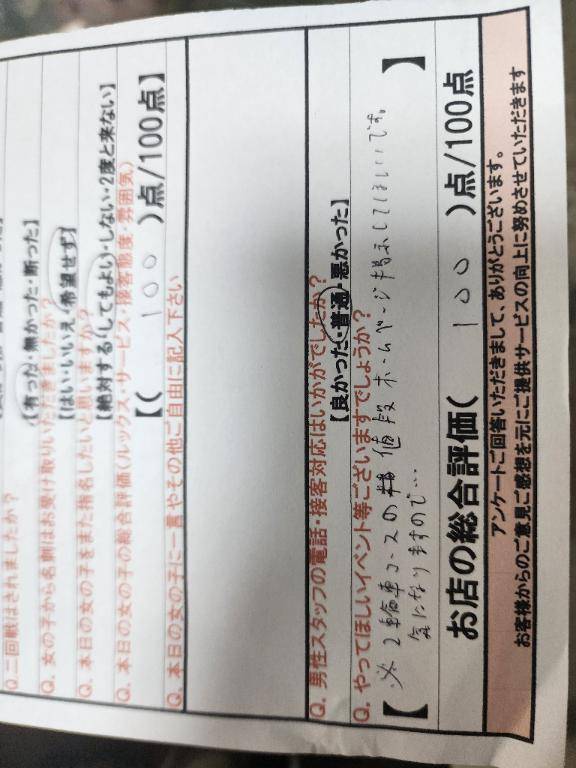 Q. 二回戦はされましたか？
【有った・無かった・断った】
Q. 女の子から名刺はお受け取りいただきましたか？
【はい・いいえ・希望せず】
Q. 本日の女の子をまた指名したいと思いますか？
【絶対する・してもよい・しない・2度と来ない】
Q. 本日の女の子の総合評価(ルックス・サービス・接客態度・雰囲気)
【( 100 )点/100点】
Q. 本日の女の子に一言やその他ご自由に記入下さい
Q. 男性スタッフの電話・接客対応はいかがでしたか？
【良かった・普通・悪かった】
Q. やってほしいイベント等ございますでしょうか？
【 ※2輪車コースの 値段ホームページ掲示してほしいです。
気になりますので… 】
お店の総合評価( 100 )点/100点
アンケートご回答いただきまして、ありがとうございます。
お客様からのご意見ご感想を元にご提供サービスの向上に努めさせていただきます